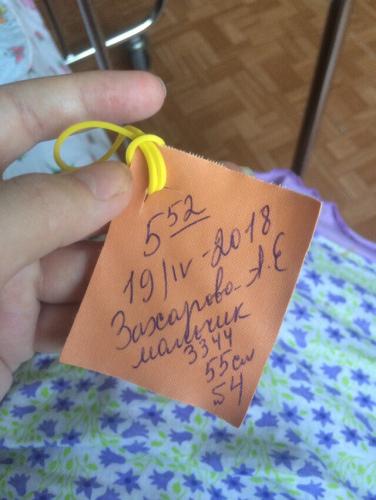 5 52
19/IV-2018
Захарова А.Е
мальчик
3344
55см
54